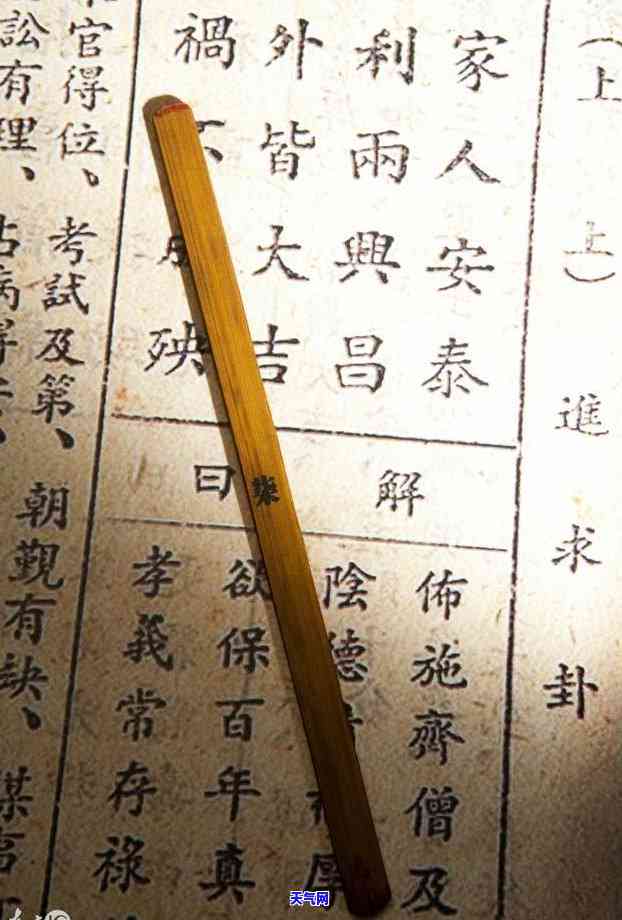 (上上)進求卦
家人安泰
利兩興昌
外皆大吉
禍殃
解曰
佈施齊僧及
陰德厚
欲保百年真
孝義常存祿
官得位、考試及第、朝覲有缺、謀
訟有理、占病得
柒
天气网